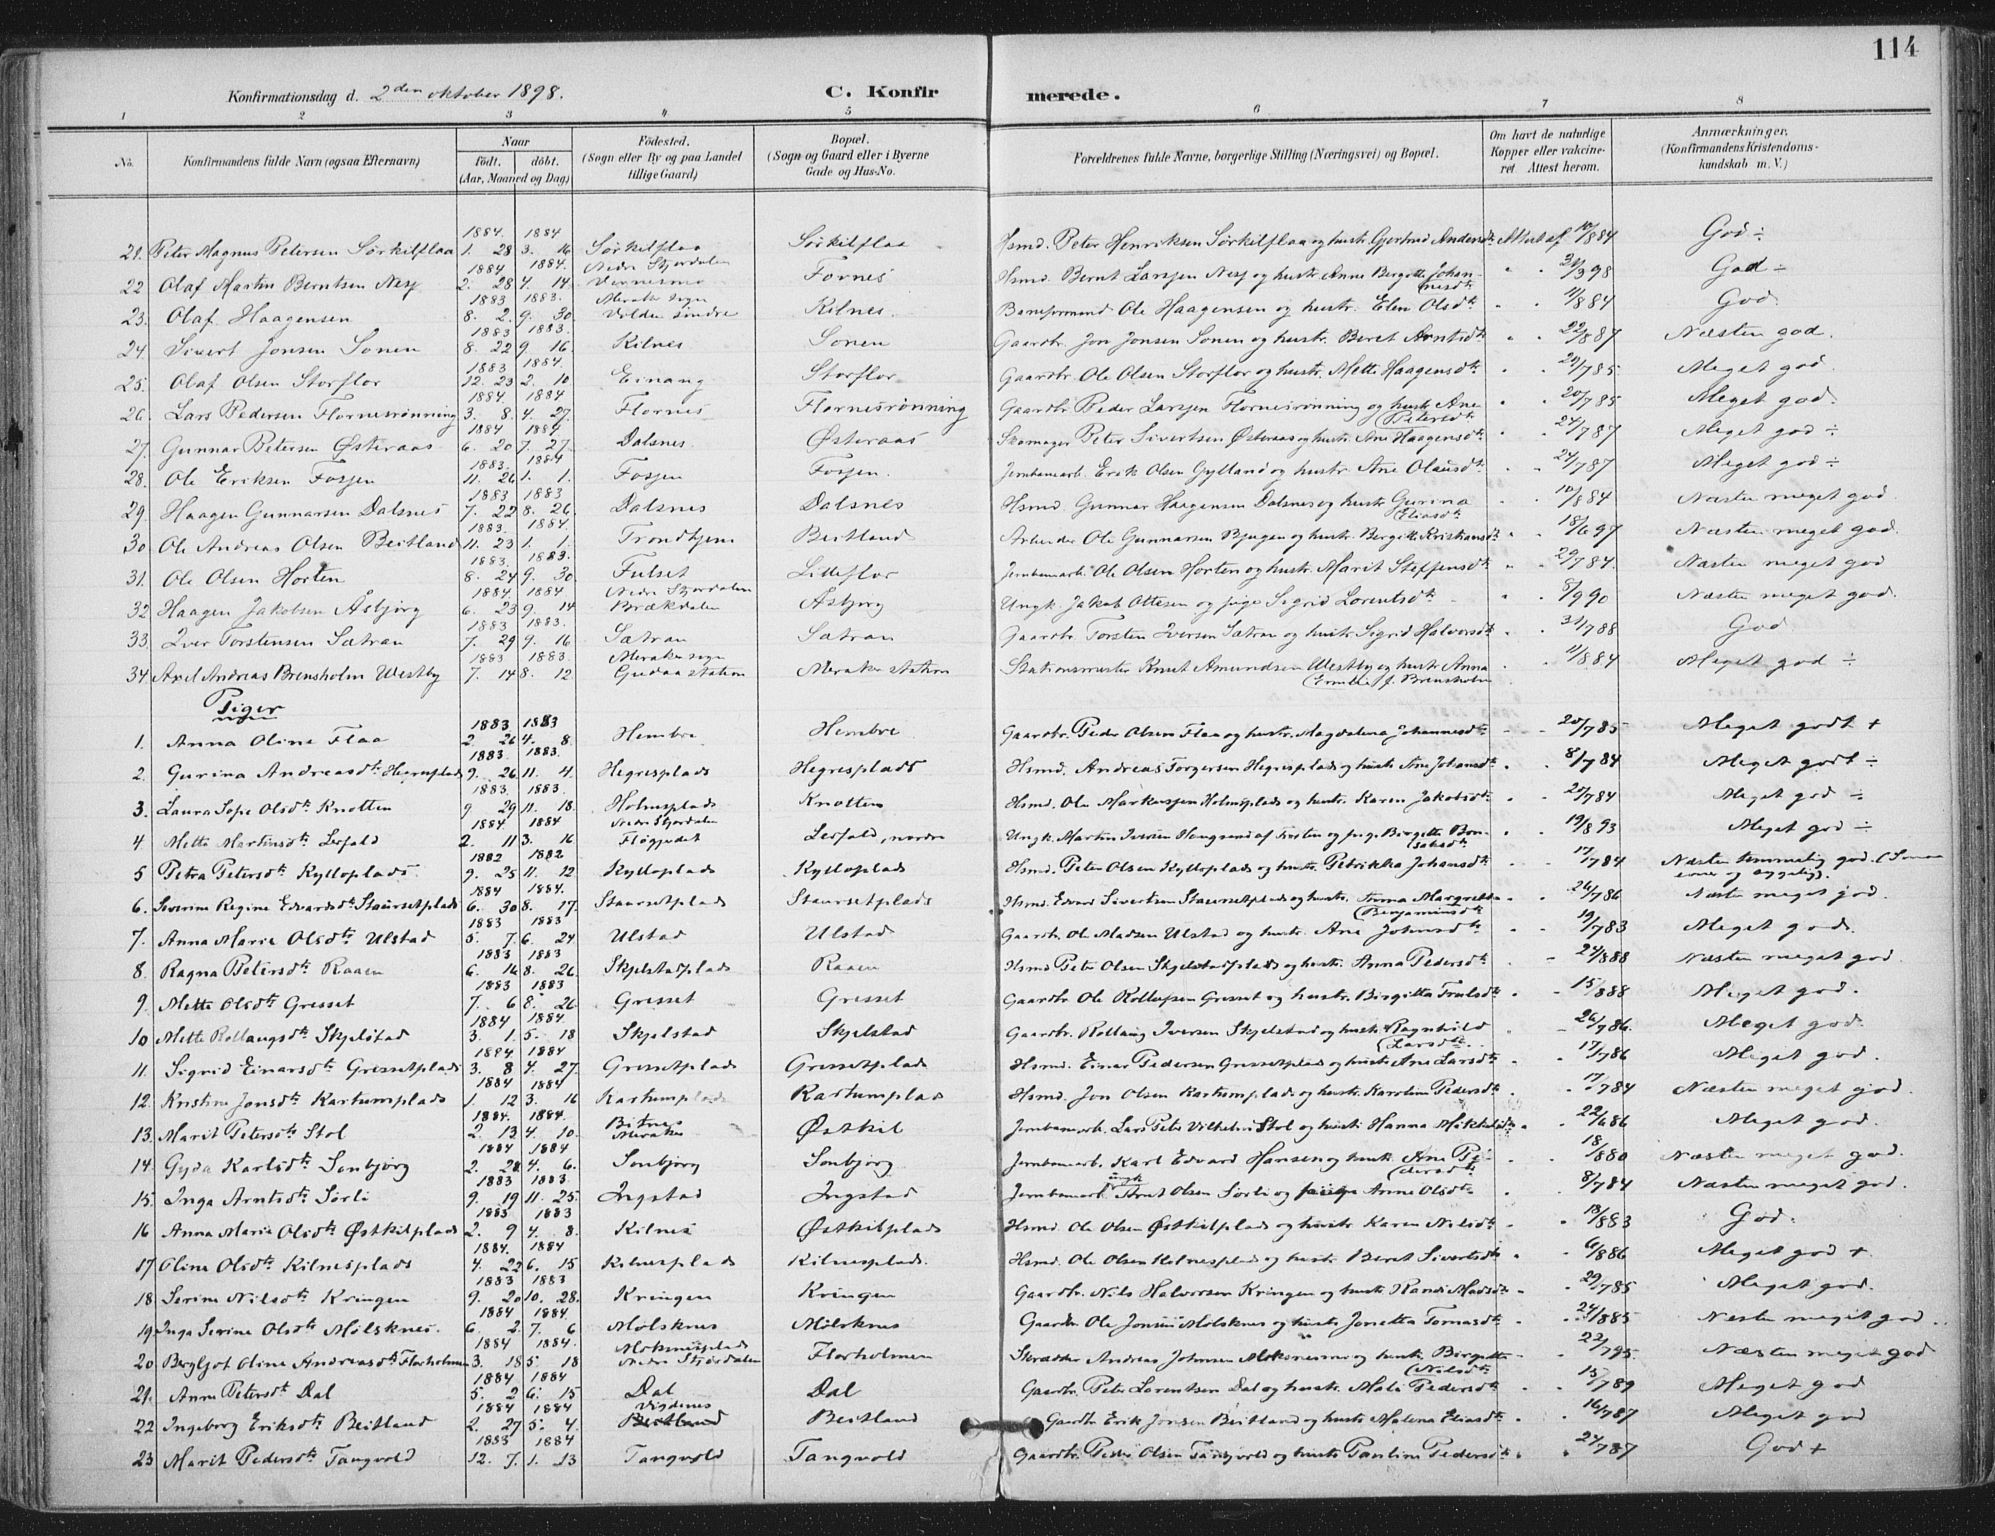 114
Konfirmationsdag d. 2den oktober 1898. C. Konfirmerede.
1 2 3 4 5 6 7 8
No. Konfirmandens fulde Navn (ogsaa Efternavn) Naar født. døbt. (Aar, Maaned og Dag) Fødested. (Sogn eller By og paa Landet tillige Gaard) Bopæl. (Sogn og Gaard eller i Byerne Gade og Hus-No. Forældrenes fulde Navne, borgerlige Stilling (Næringsvei) og Bopæl. Om havt de naturlige Kopper eller vaccineret Attest herom. Anmærkninger. (Konfirmandens Kristendomskundskab m. V.)
21. Peter Magnus Petersen Sørkilflaa 1884 1. 28 1884 3. 16 Sørkilflaa Sørkilflaa Hsmd. Peter Henriksen Sørkilflaa og hustr. Gjertrud Andersdtr Attest af 10/884 God ÷
22 Olaf Martin Berntsen Nesj 1884 2. 28 1884. 4. 14 Nedre Stjørdalen Værnesmo Fornes Hsmd. Bernt Larsen Nesj og hustr. Anne Bergitte Johannesdtr " " 31/398 God ÷
23. Olaf Haagensen 1883 8. 2. 1883. 9. 30. Meraker sogn Volden søndre Kilnes. Baneformand Ole Haagensen og hustr. Elen Olsdtr " " 11/884 God
24 Sivert Jonsen Sonen 1883 8. 22 1883. 9. 16. Kilnes Sonen Gaardbr. Jon Jonsen Sonen og hustr. Beret Arntsdtr " " 22/887 Næsten god.
25. Olaf Olsen Storflor 1883 12. 23 1884. 2. 10 Einang Storflor Gaardbr. Ole Olsen Storflor og hustr. Mette Haagensdtr " " 29/785 Meget god
26. Lars Pedersen Flornesrønning 1884 3. 8 1884 4. 27. Flornes Flornesrønning Gaardbr. Peder Larsen Flornesrønning og hustr. Ane Petersdtr " " 20/785 Meget god.
27. Gunnar Petersen Østeraas 1884 6. 20 1884. 7. 27. Dalsnes. Østeraas Skomager Peter Sivertsen Østeraas og hustr. Ane Haagensdtr " " 24/787 Meget god ÷
28. Ole Eriksen Fosjen 1883. 11. 26 1884 1. 1. Fosjen Fosjen. Jernbanearb. Erik Olsen Gylland og hustr. Ane Olausdtr " " 24/787 Meget god ÷
29 Haagen Gunnarsen Dalsnes 1883 7. 22 1883 8. 26. Dalsnes Dalsnes Hsmd. Gunnar Haagensen Dalsnes og hustr. Gurina Eliasdtr " " 10/884 Næsten meget god
30 Ole Andreas Olsen Beitland 1883. 11. 23 1884. 1. 1. Trondhjem Beitland Arbeider Ole Gunnarsen Bjugen og hustr. Bergitte Kristiansdtr " " 18/697 Næsten meget god.
31. Ole Olsen Horten 1883. 8. 24 1883. 9. 30. Fulset Litleflor Jernbanearb. Ole Olsen Horten og hustr. Marit Steffensdtr " " 29/784. Næsten meget god
32 Haagen Jakobsen Åsbjørg 1884. 6. 23 1884. 9. 14 Nedre Stjørdalen Brækdalen Åsbjørg Ungk. Jakob Ottesen og pige Sigrid Lorentsdtr " " 8/990 Næsten meget god.
33. Iver Torstensen Sætran 1883 7. 29 1883. 9. 16 Sætran Sætran Gaardbr. Torsten Iversen Sætran og hustr. Sigrid Halvorsdtr " " 31/788 God
34 Axel Andreas Brensholm Westby 1883 7. 14 1883. 8. 12 Meraker sogn Gudaa station Meraker station Stationsmester Knut Amundsen Westby og hustr. Anna Emilie f. Brensholm " " 11/884 Meget god ÷
Piger
1. Anna Oline Flaa 1883 2. 26 1883 4. 8. Hembre Hembre Gaardbr. Peder Olsen Flaa og hustr. Magdalena Johannesdtr " " 20/785 Meget godt +
2. Gurina Andreasdtr Hegresplads 1883 9. 26 1883. 11. 4. Hegresplads Hegresplads Hsmd. Andreas Torgersen Hegresplads og hustr. Ane Johansdtr " " 8/784 Meget godt ÷
3. Laura Sofie Olsdtr Knotten 1883 9 29 1883. 11. 18. Holmsplads Knotten Hsmd. Ole Markussen Holmsplads og hustr. Karen Jakobsdtr " " 25/784 Meget god ÷
4 Mette Martinsdtr Leifald 1884 2. 11 1884 3. 16 Nedre Stjørdalen Leifald, nordre Ungk. Martin Iversen og pige Birgitte " " 19/893 Meget god ÷
5 Petra Petersdtr Kylloplads 1882 9. 25 1882 11. 12 Kylloplads Kylloplads Hsmd. Peter Olsen Kylloplads og hustr. Petrikka Johansdtr " " 17/784 Næsten temmelig god.
6. Severine Regine Edvardsdtr Staursetplads 1884 6. 30 1884. 8. 17. Staursetplads Staursetplads Hsmd. Edvard Sivertsen Staursetplads og hustr. Anna Margrethe Benjaminsdtr " " 26/786 Næsten meget god.
7. Anna Marie Olsdtr Ulstad 1883 5. 7. 1883 6. 24 Ulstad Ulstad Gaardbr. Ole Madsen Ulstad og hustr. Ane Johnsdtr " " 19/783 Meget god.
8. Ragna Petersdtr Raaen 1883 6. 16 1883 8. 26. Skjelstadplads Raaen Hsmd. Peter Olsen Skjelstadplads og hustr. Anna Pedersdtr " 24/888 Næsten meget god
9. Mette Olsdtr Gresset 1883 7. 6 1883 8. 26 Gresset Gresset Gaardbr. Ole Rollaugsen Gresset og hustr. Birgitta Trulsdtr " " 15/888 Meget god.
10 Mette Rollaugsdtr Skjelstad 1884 3. 1. 1884 5. 18 Skjelstad Skjelstad Gaardbr. Rollaug Iversen Skjelstad og hustr. Ragnhild Larsdtr " 26/786. Meget god
11. Sigrid Einarsdtr Gressetplads 1884 3. 8 1884 4. 27. Gressetplads Gressetplads Hsmd. Einar Pedersen Gressetplads og hustr. Ane Larsdtr " " 17/786 Meget god.
12. Kristine Jonsdtr Kartumplads 1884 1. 12 1884 3. 16 Kartumplads Kartumplads Hsmd. Jon Olsen Kartumplads og hustr. Karoline Pedersdtr " 17/784 Næsten meget god.
13. Marit Petersdtr Stol 1884. 2. 13 1884. 4. 10. Bitnes Meraker Østkil Jernbanearb. Lars Peter Vilhelm Stol og hustr. Hanna Mikkelsdtr " " 22/686 Meget god.
14. Gyda Karlsdtr Sonbjørg 1884 2. 28 1884 4. 6. Sonbjørg Sonbjørg Jernbanearb. Karl Edvard Hansen og hustr. Ane Pedersdtr " " 18/880 Næsten meget god.
15. Inga Arntsdtr Sørli 1883 9. 19 1883 11. 25. Ingstad Ingstad Jernbanearb. ungk Arnt Olsen Sørli og pige Anne Olsdtr " " 8/784 Næsten meget god.
16 Anna Maria Olsdtr Østkilplads 1883 2. 9 1883 4. 8. Kilnes Østkilplads Hsmd. Ole Olsen Østkilplads og hustr. Karen Nilsdtr " " 13/883 God.
17 Oline Olsdtr Kilnesplads 1884. 4. 22 1884 6. 15 Kilnesplads Kilnesplads. Hsmd. Ole Olsen Kilnesplads og hustr. Beret Sivertsdtr " " 6/886 Meget god +
18 Serine Nilsdtr Kringen 1883 9. 20 1883 10. 28. Kringen Kringen Gaardbr. Nils Halvorsen Kringen og hustr. Randi Madsdtr " " 29/785 Meget god.
19. Inga Serine Olsdtr Mølsknes. 1884 6. 2. 1884 7. 6 Mølsknes Mølsknes Gaardbr. Ole Jonsen Mølsknes og hustr. Jonetta Tomasdtr " " 24/885 Næsten meget god
20 Bergljot Oline Andreasdtr Florholmen 1884 3. 18 1884. 5. 18 Moksnesplads Nedre Stjørdalen Florholmen Skrædder Andreas Johnsen Moksnesmo og hustr. Birgitte Nilsdtr " " 22/795. Næsten meget god
21. Anne Petersdtr Dal 1884 5. 2 1884 6. 15 Dal Dal Gaardbr. Peter Lorentsen Dal og hustr. Mali Pedersdtr " " 15/789 Meget god
22 Ingeborg Eriksdtr Beitland 1884 2. 27 1884 5. 4. Vigdenes Beitland Beitland Gaardbr. Erik Jonsen Beitland og hustr. Malena Eliasdtr " " 16/787 Meget god
23 Marit Pedersdtr Tangvold 1883 12. 7. 1884 1. 13 Tangvold Tangvold Gaardbr. Peder Olsen Tangvold og hustr. Pauline Pedersdtr " " 24/787 God +